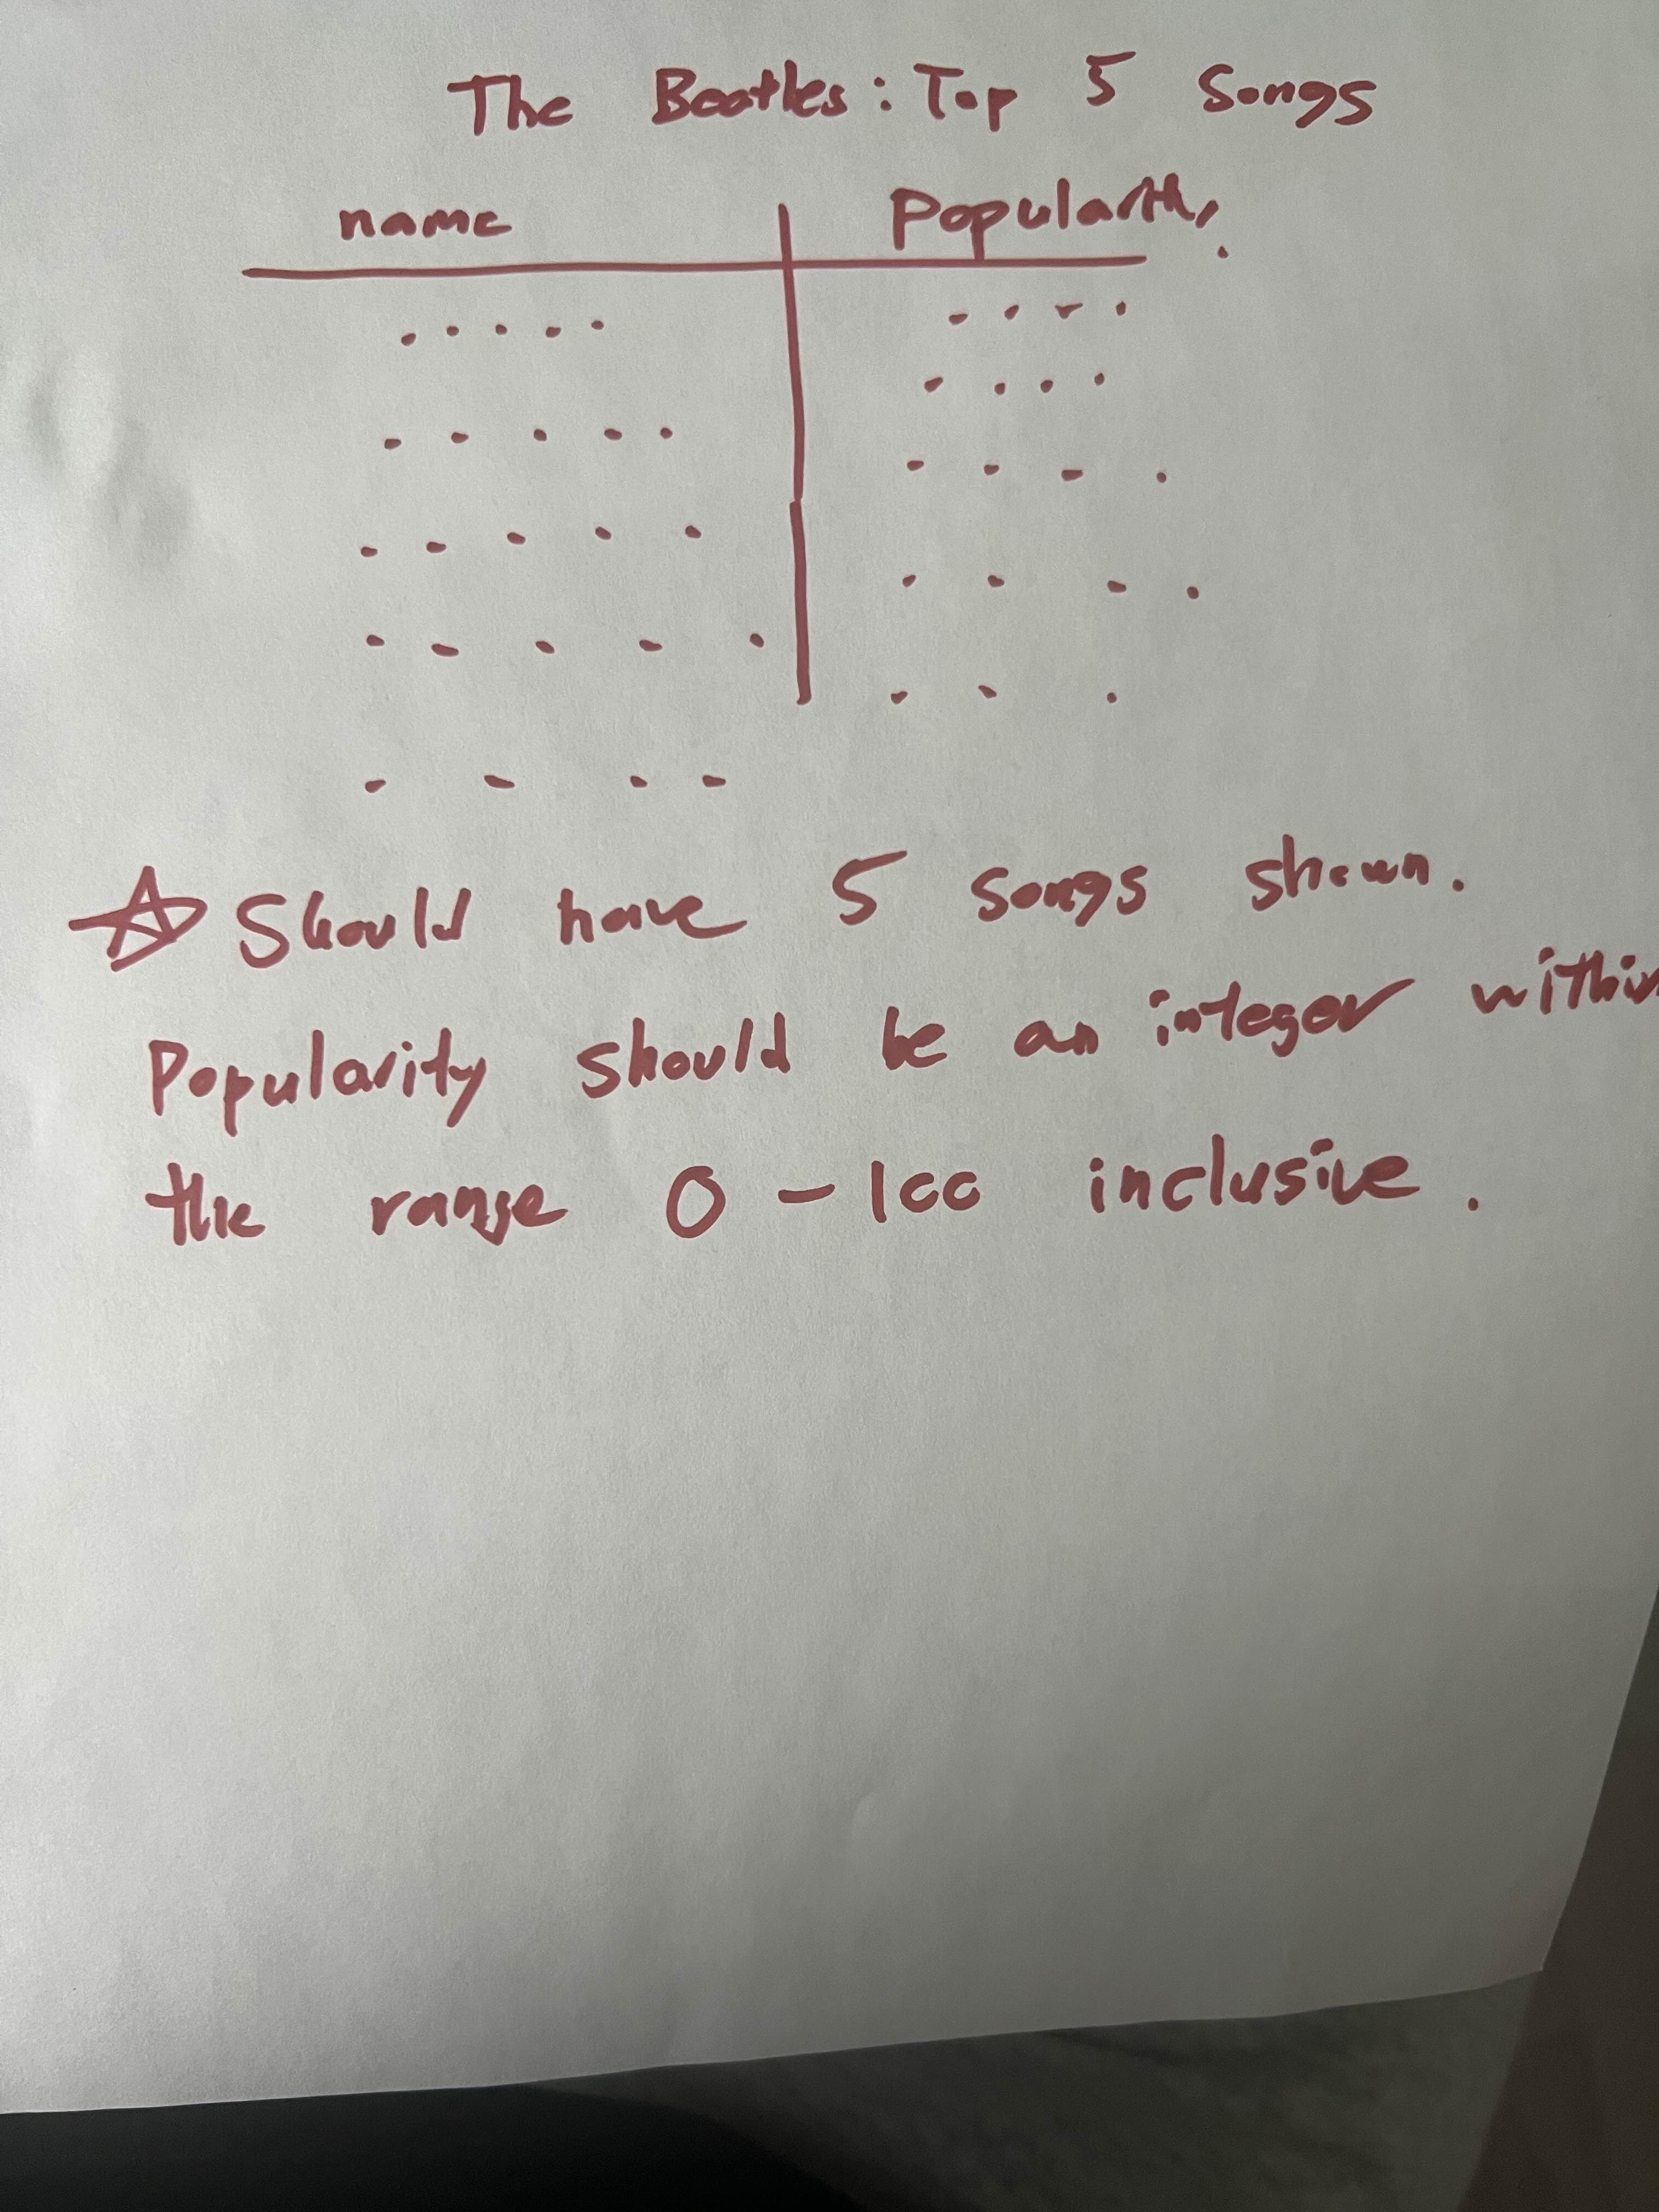 The Beatles: Top 5 Songs
name Popularity
Should have 5 songs shown.
Popularity should be an integer within
the range 0-100 inclusive.